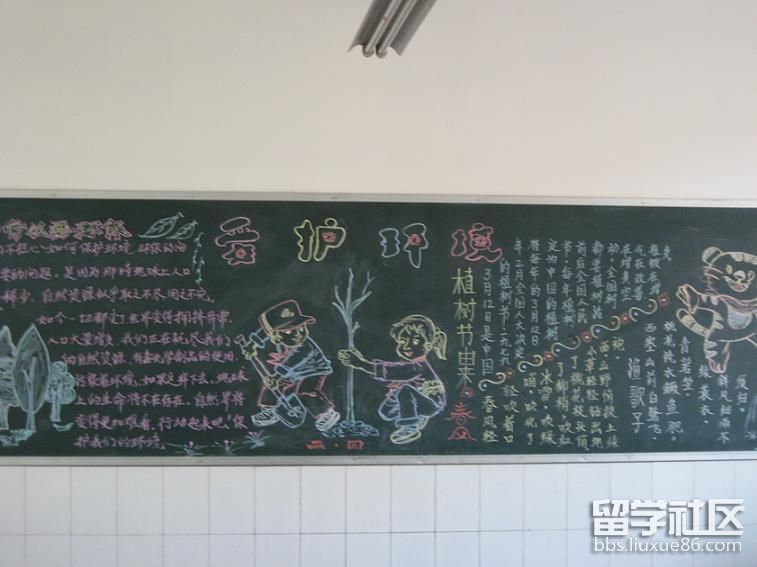 爱护环境
不担心如何保护环境、环保的问
要的问题，是因为那时地球上人口
稀少，自然资源似乎取之不尽、用之不竭。
如今一切都变了世界变得拥挤
人口大量增长，我们正在耗尽我们
的自然资源，有毒化学制品的使用，
污染着环境，如果这样下去，地球
上的生命将不在存在，自然界将
变得更加难看，行动起来吧，保
护我们的环境。
二·四
植树节由来
3月12日是中国
的植树节·一九七九
年2月全国人大决定
将每年的3月12日
定为中国的植树
节·每年植树
前后全国人民
都要植树活
动·全国树
春风
春风轻
轻吹着口
哨，吹化了
冰雪，吹绿
了柳梢，吹红
了桃花枝头俏
小草轻轻钻出地
渔歌子
西塞山前白鹭飞，
桃花流水鳜鱼肥。
青箬笠，
绿蓑衣，
斜风细雨不
须归。
留学社区
bbs.liuxue86.com